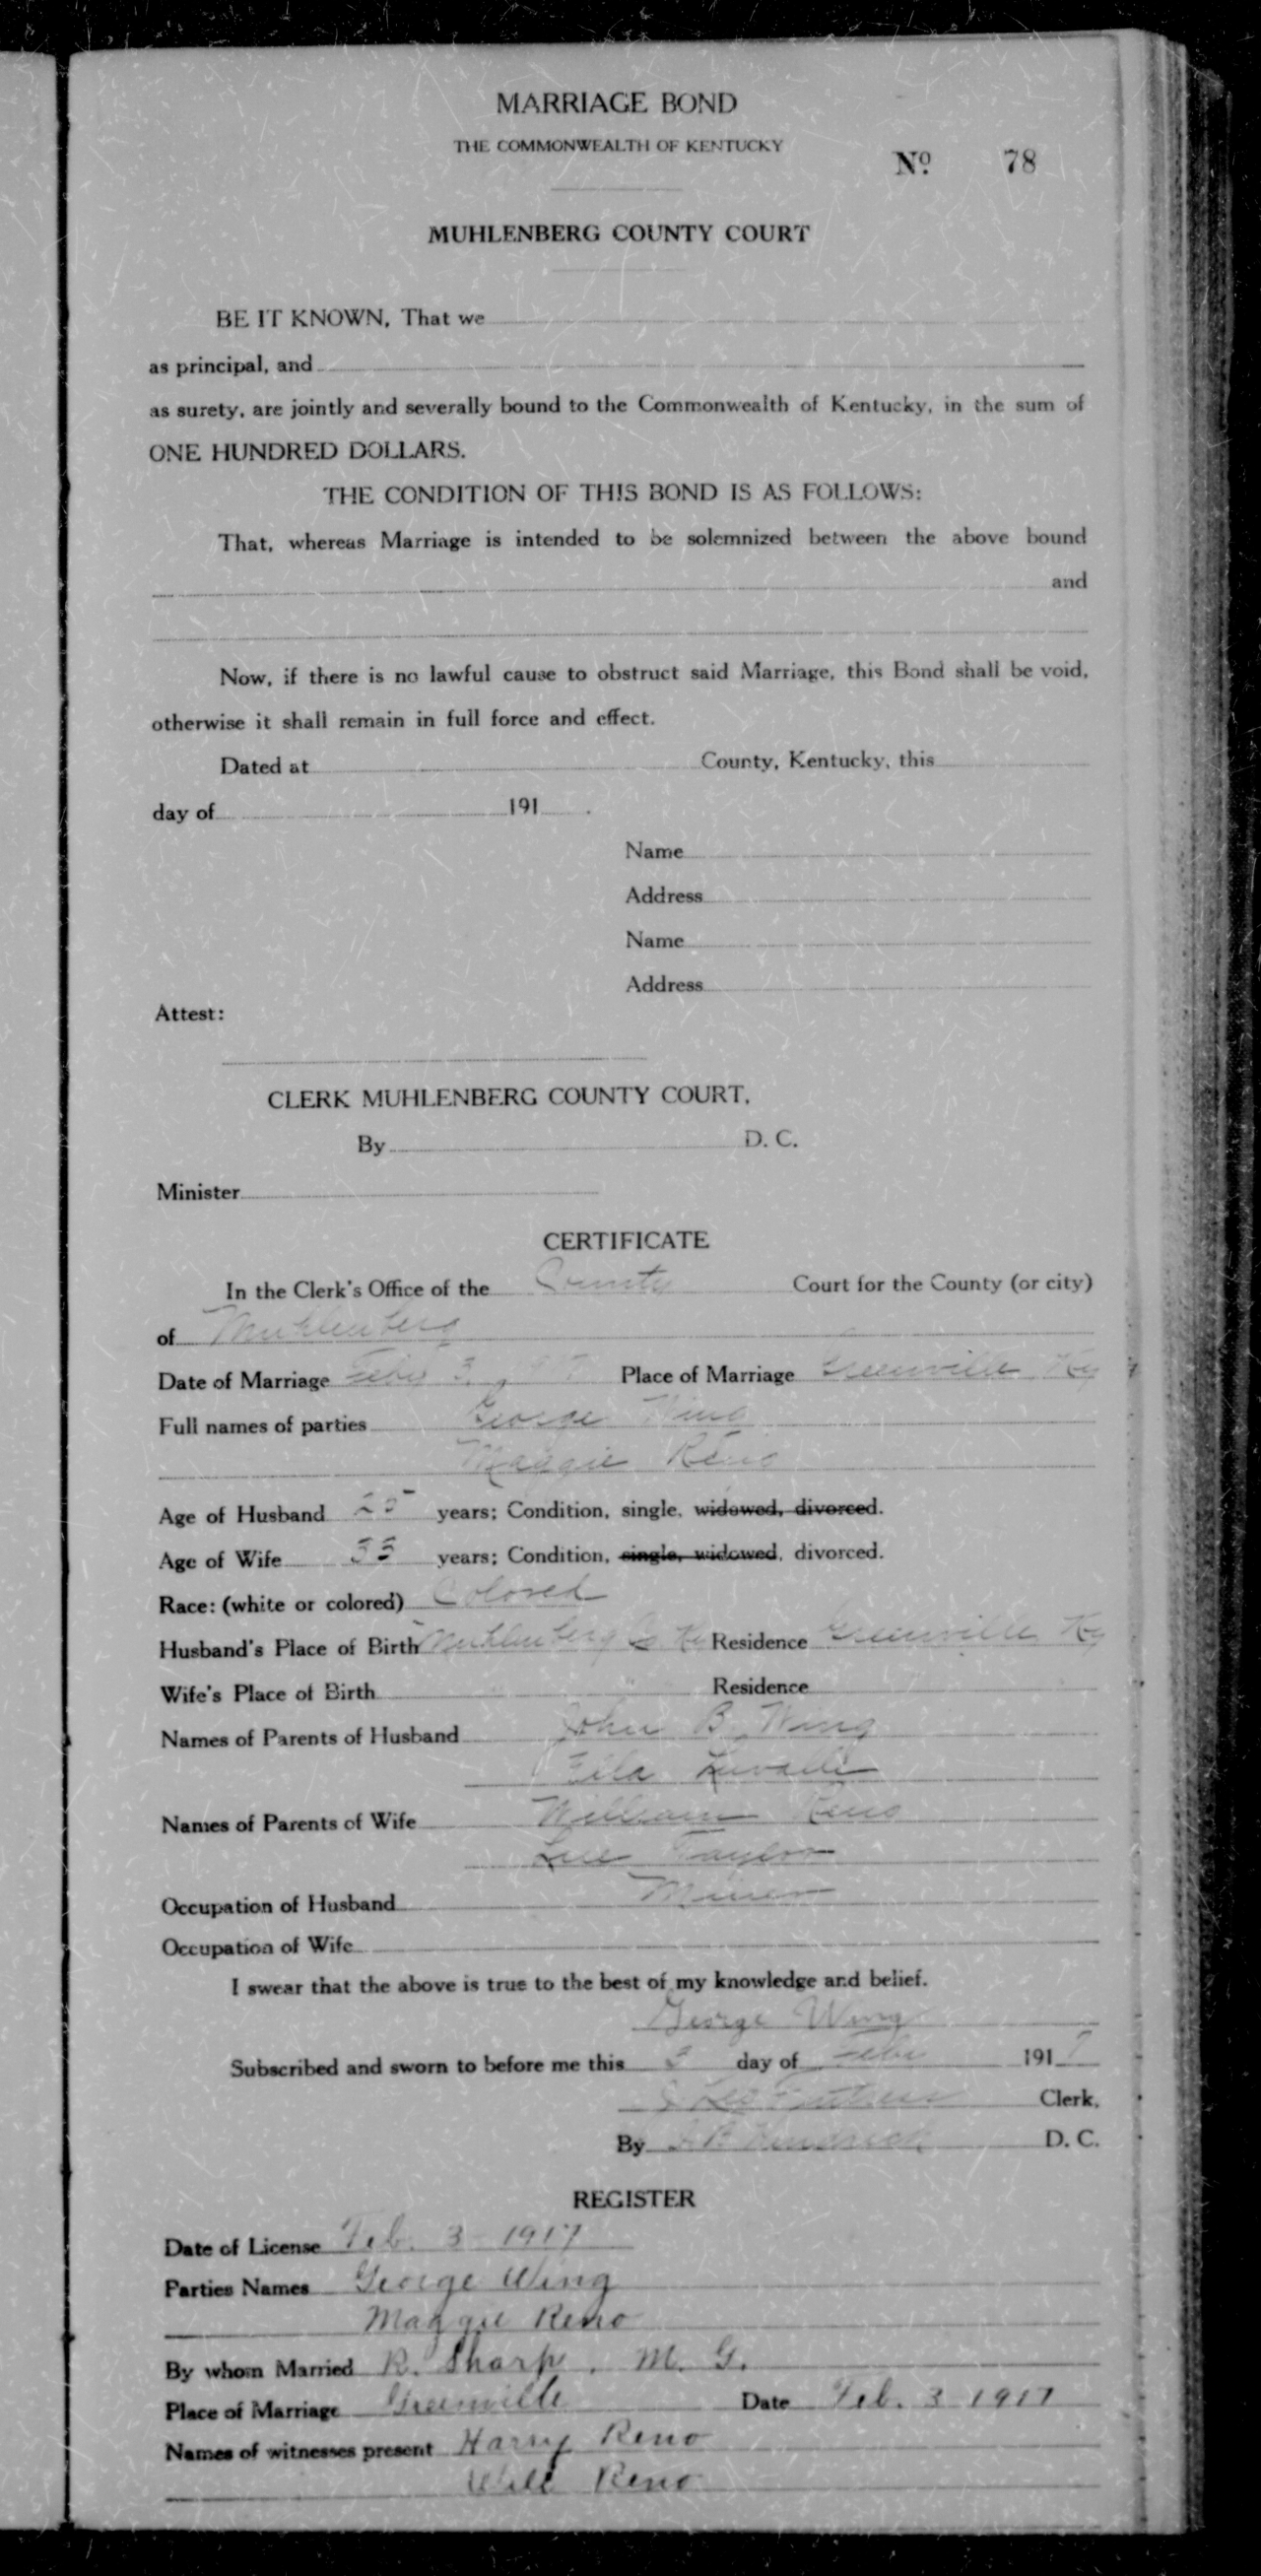 MARRIAGE BOND
THE COMMONWEALTH OF KENTUCKY
No. 78
MUHLENBERG COUNTY COURT
BE IT KNOWN, That we
as principal, and
as surety, are jointly and severally bound to the Commonwealth of Kentucky, in the sum of
ONE HUNDRED DOLLARS.
THE CONDITION OF THIS BOND IS AS FOLLOWS:
That, whereas Marriage is intended to be solemnized between the above bound
and
Now, if there is no lawful cause to obstruct said Marriage, this Bond shall be void,
otherwise it shall remain in full force and effect.
Dated at County, Kentucky, this
day of 191 .
Name
Address
Name
Address
Attest:
CLERK MUHLENBERG COUNTY COURT,
By D. C.
Minister
CERTIFICATE
In the Clerk's Office of the County Court for the County (or city)
of Muhlenberg
Date of Marriage Feby 3, Place of Marriage Greenville Ky
Full names of parties George Wing
Maggie Reno
Age of Husband 25 years; Condition, single, widowed, divorced.
Age of Wife years; Condition, single, widowed, divorced.
Race: (white or colored) Colored
Husband's Place of Birth Muhlenberg Co Ky Residence Greenville Ky
Wife's Place of Birth Residence
Names of Parents of Husband John B. Wing
Names of Parents of Wife William Reno
Lue Taylor
Occupation of Husband Miner
Occupation of Wife
I swear that the above is true to the best of my knowledge and belief.
George Wing
Subscribed and sworn to before me this 3 day of Feby 1917
Clerk.
By D. C.
REGISTER
Date of License Feb. 3 1917
Parties Names George Wing
Maggie Reno
By whom Married R. Sharp, M. G.
Place of Marriage Greenville Date Feb. 3 1917
Names of witnesses present Harry Reno
Will Reno